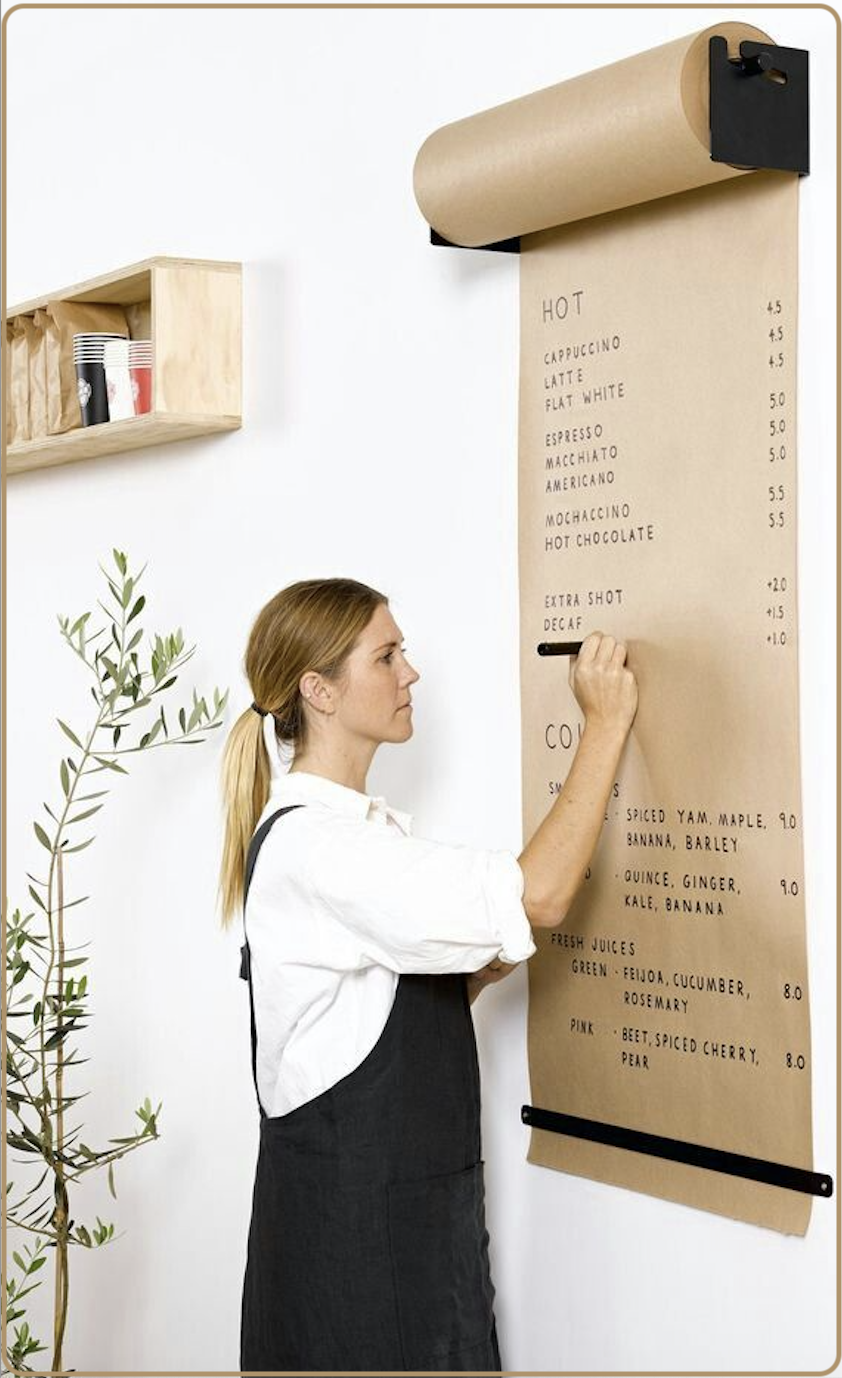 HOT
CAPPUCCINO 4.5
LATTE 4.5
FLAT WHITE 4.5
ESPRESSO 5.0
MACCHIATO 5.0
AMERICANO 5.0
MOCHACCINO 5.5
HOT CHOCOLATE 5.5
EXTRA SHOT +2.0
DECAF +1.5
+1.0
· SPICED YAM. MAPLE, 9.0
BANANA, BARLEY
· QUINCE, GINGER, 9.0
KALE, BANANA
FRESH JUICES
GREEN · FEIJOA, CUCUMBER, 8.0
ROSEMARY
PINK · BEET, SPICED CHERRY, 8.0
PEAR